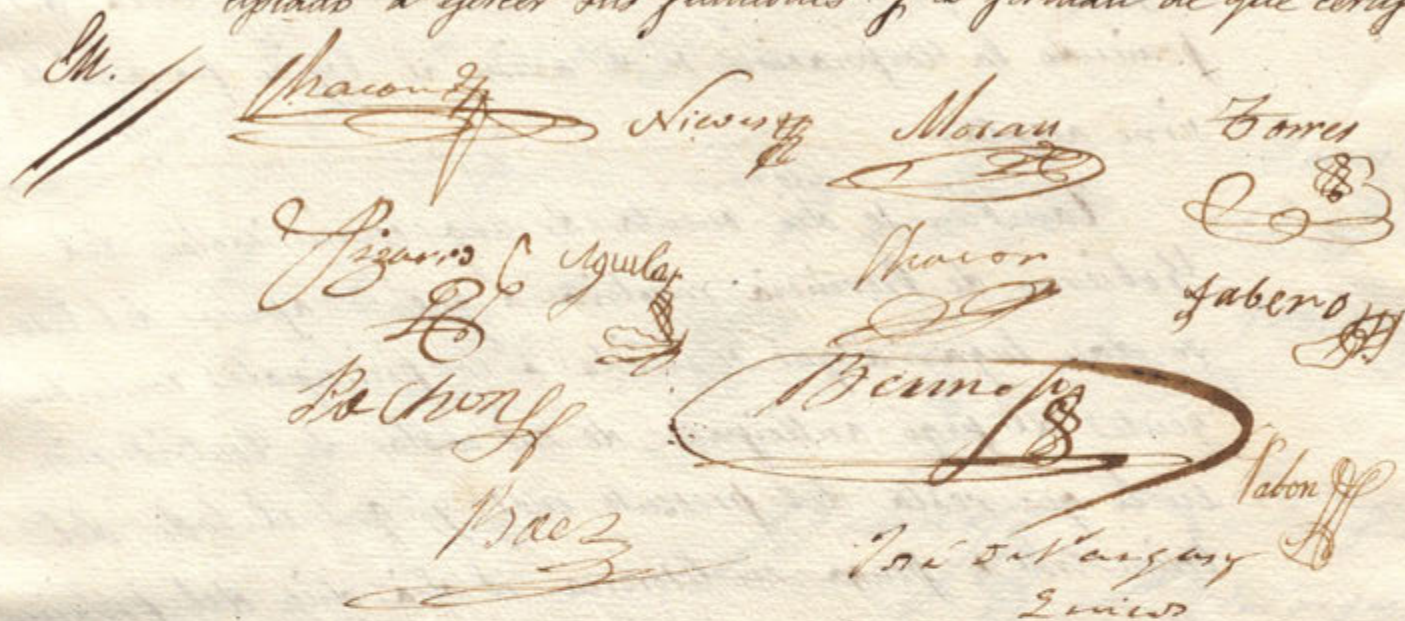 a ejercer sus funciones y lo firman de que certif
Chacon Nieves Moran Torres
Pizarro Aguilar Chacon Tabero
Pachon Bermo
Pabon
Baez
José de Vargas y
Quiros